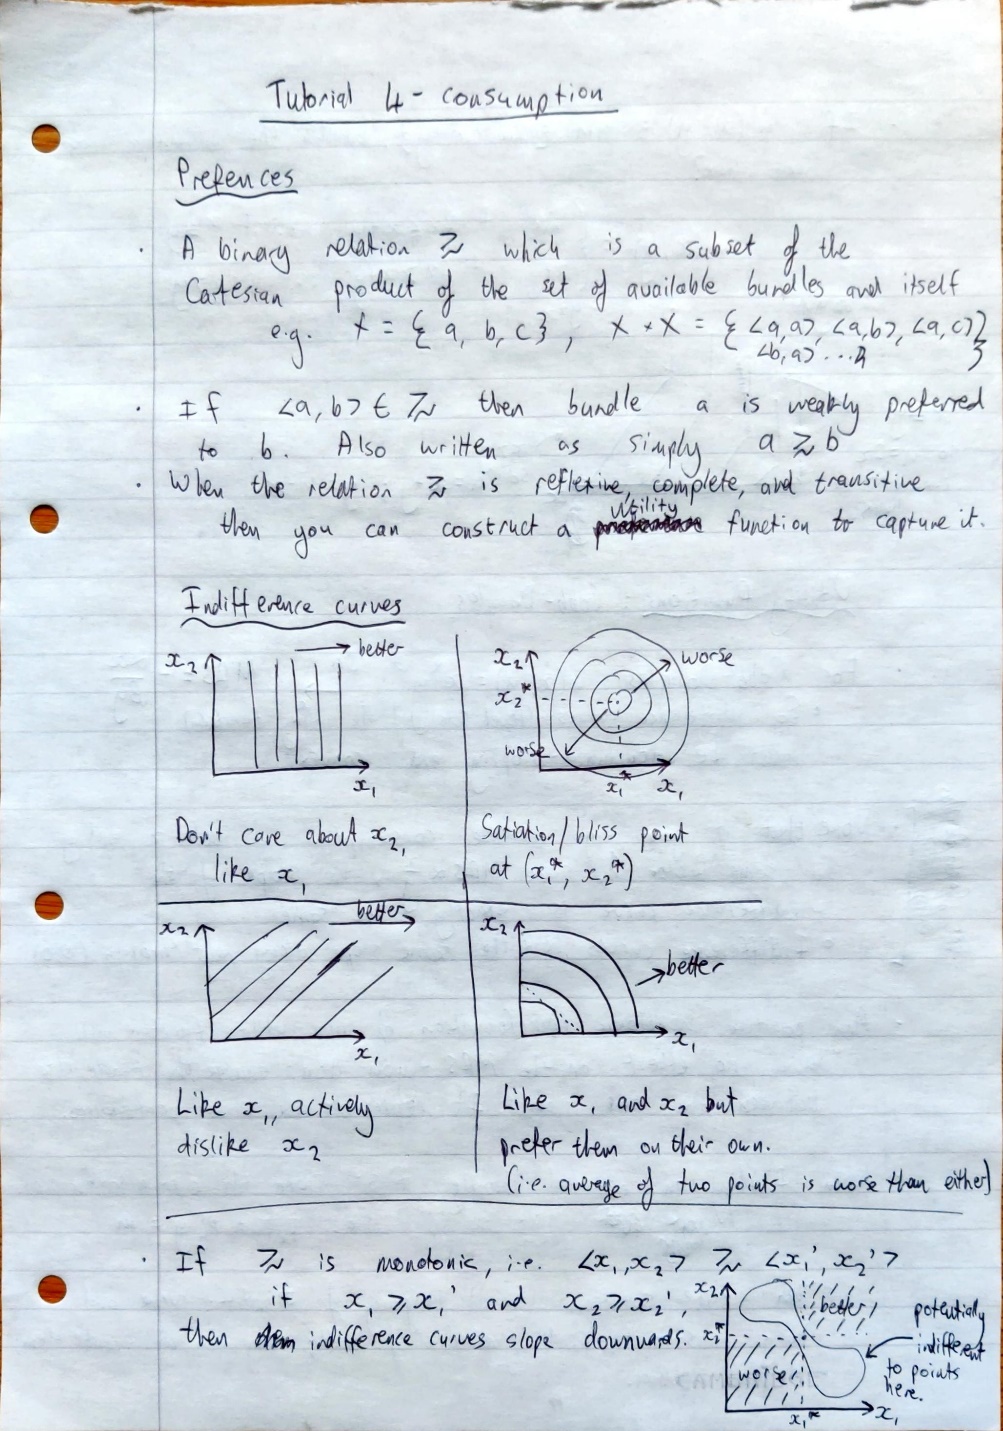 Tutorial 4 - consumption
Prefences
· A binary relation ≿ which is a subset of the
Cartesian product of the set of available bundles and itself
e.g. X = { a, b, c }, X × X = { <a,a>, <a,b>, <a,c>,
<b,a> ... }
· If <a,b> ∈ ≿ then bundle a is weakly preferred
to b. Also written as simply a ≿ b
· When the relation ≿ is reflexive, complete, and transitive
then you can construct a utility function to capture it.
Indifference curves
x₂ → better
x₁
Don't care about x₂,
like x₁
x₂ worse
x₂*
worse
x₁* x₁
Satiation/bliss point
at (x₁*, x₂*)
better
x₂
x₁
Like x₁, actively
dislike x₂
x₂
better
x₁
Like x₁ and x₂ but
prefer them on their own.
(i.e. average of two points is worse than either)
· If ≿ is monotonic, i.e. <x₁,x₂> ≿ <x₁',x₂'>
if x₁ ⩾ x₁' and x₂ ⩾ x₂',
then indifference curves slope downwards.
x₂
better
x₂*
worse
x₁* x₁
potentially
indifferent
to points
here.